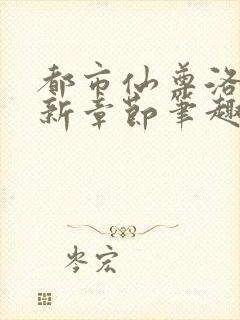 都市仙尊洛
新章节笔趣
岑宏